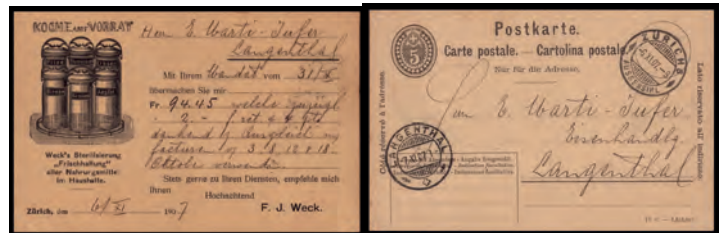 KOCHE AUF VORRAT
Weck's Sterilisierung
„Frischhaltung"
aller Nahrungsmittel
im Haushalte.
Herrn E. Warti-Jufer
Langenthal
Mit Ihrem Mandat vom 31/X
übermachen Sie mir
Fr. 94.45 welche zuzügl.
2.-
dankend z. Ausgleich m
Facturen v. 3. 8. 12 & 18.
Oktober verwende.
Stets gerne zu Ihren Diensten, empfehle mich
Ihnen
Hochachtend
Zürich, den 6/XI 1907
F. J. Weck.
Postkarte.
Carte postale. — Cartolina postale.
Nur für die Adresse.
5
ZÜRICH
Côté réservé à l'adresse.
Lato riservato all'indirizzo.
Herrn E. Warti-Jufer
Eisenhandlg.
Langenthal
LANGENTHAL